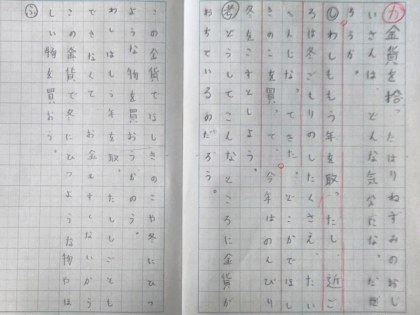 た 金貨を拾ったはりねずみのおじ
いさんは、どんな気分だった
ろうか。
心 わしももう年を取ったし、近ご
ろは冬ごもりのしたくさえ、たい
へんじな。てきた。どこかでほし
きのこを買って、今年はのんびり
冬をこすとしよう。
考 どうしてこんなところに金貨が
おちているのだろう。
この金貨でほしきのこや冬にひつ
ような物を買おうかのう。
わしはもう年を取ったししごとも
できなくてお金もすくないから
この金貨で冬にひつような物やほ
しい物を買お。